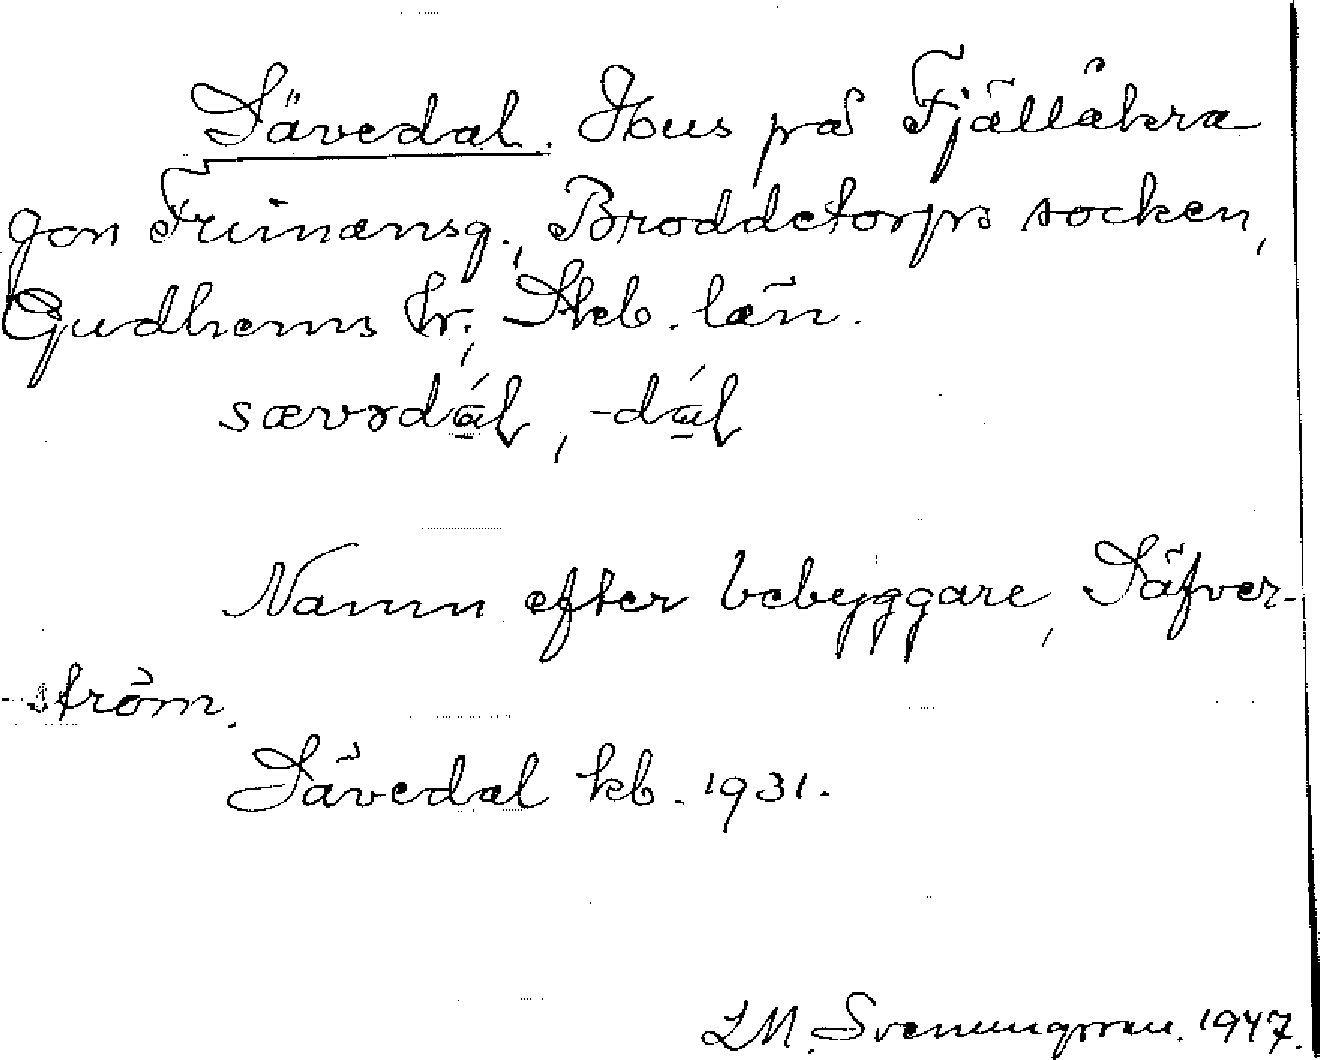 Sävedal. Hus på Fjällåkra
Jon Frimansg., Broddetorps socken,
Gudhems hr, Skb. län.
sævədál, -dál
Namn efter bebyggare, Säfver-
ström.
Sävedal kb. 1931.
LM. Svenungsson. 1947.